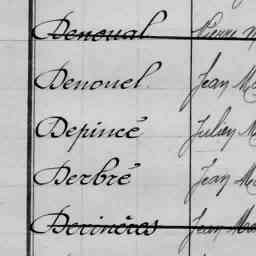 Denoual Pierre M
Denouel. Jean Ma
Depincé Julien M
Derbré Jean Ma
Derinères Jean Ma